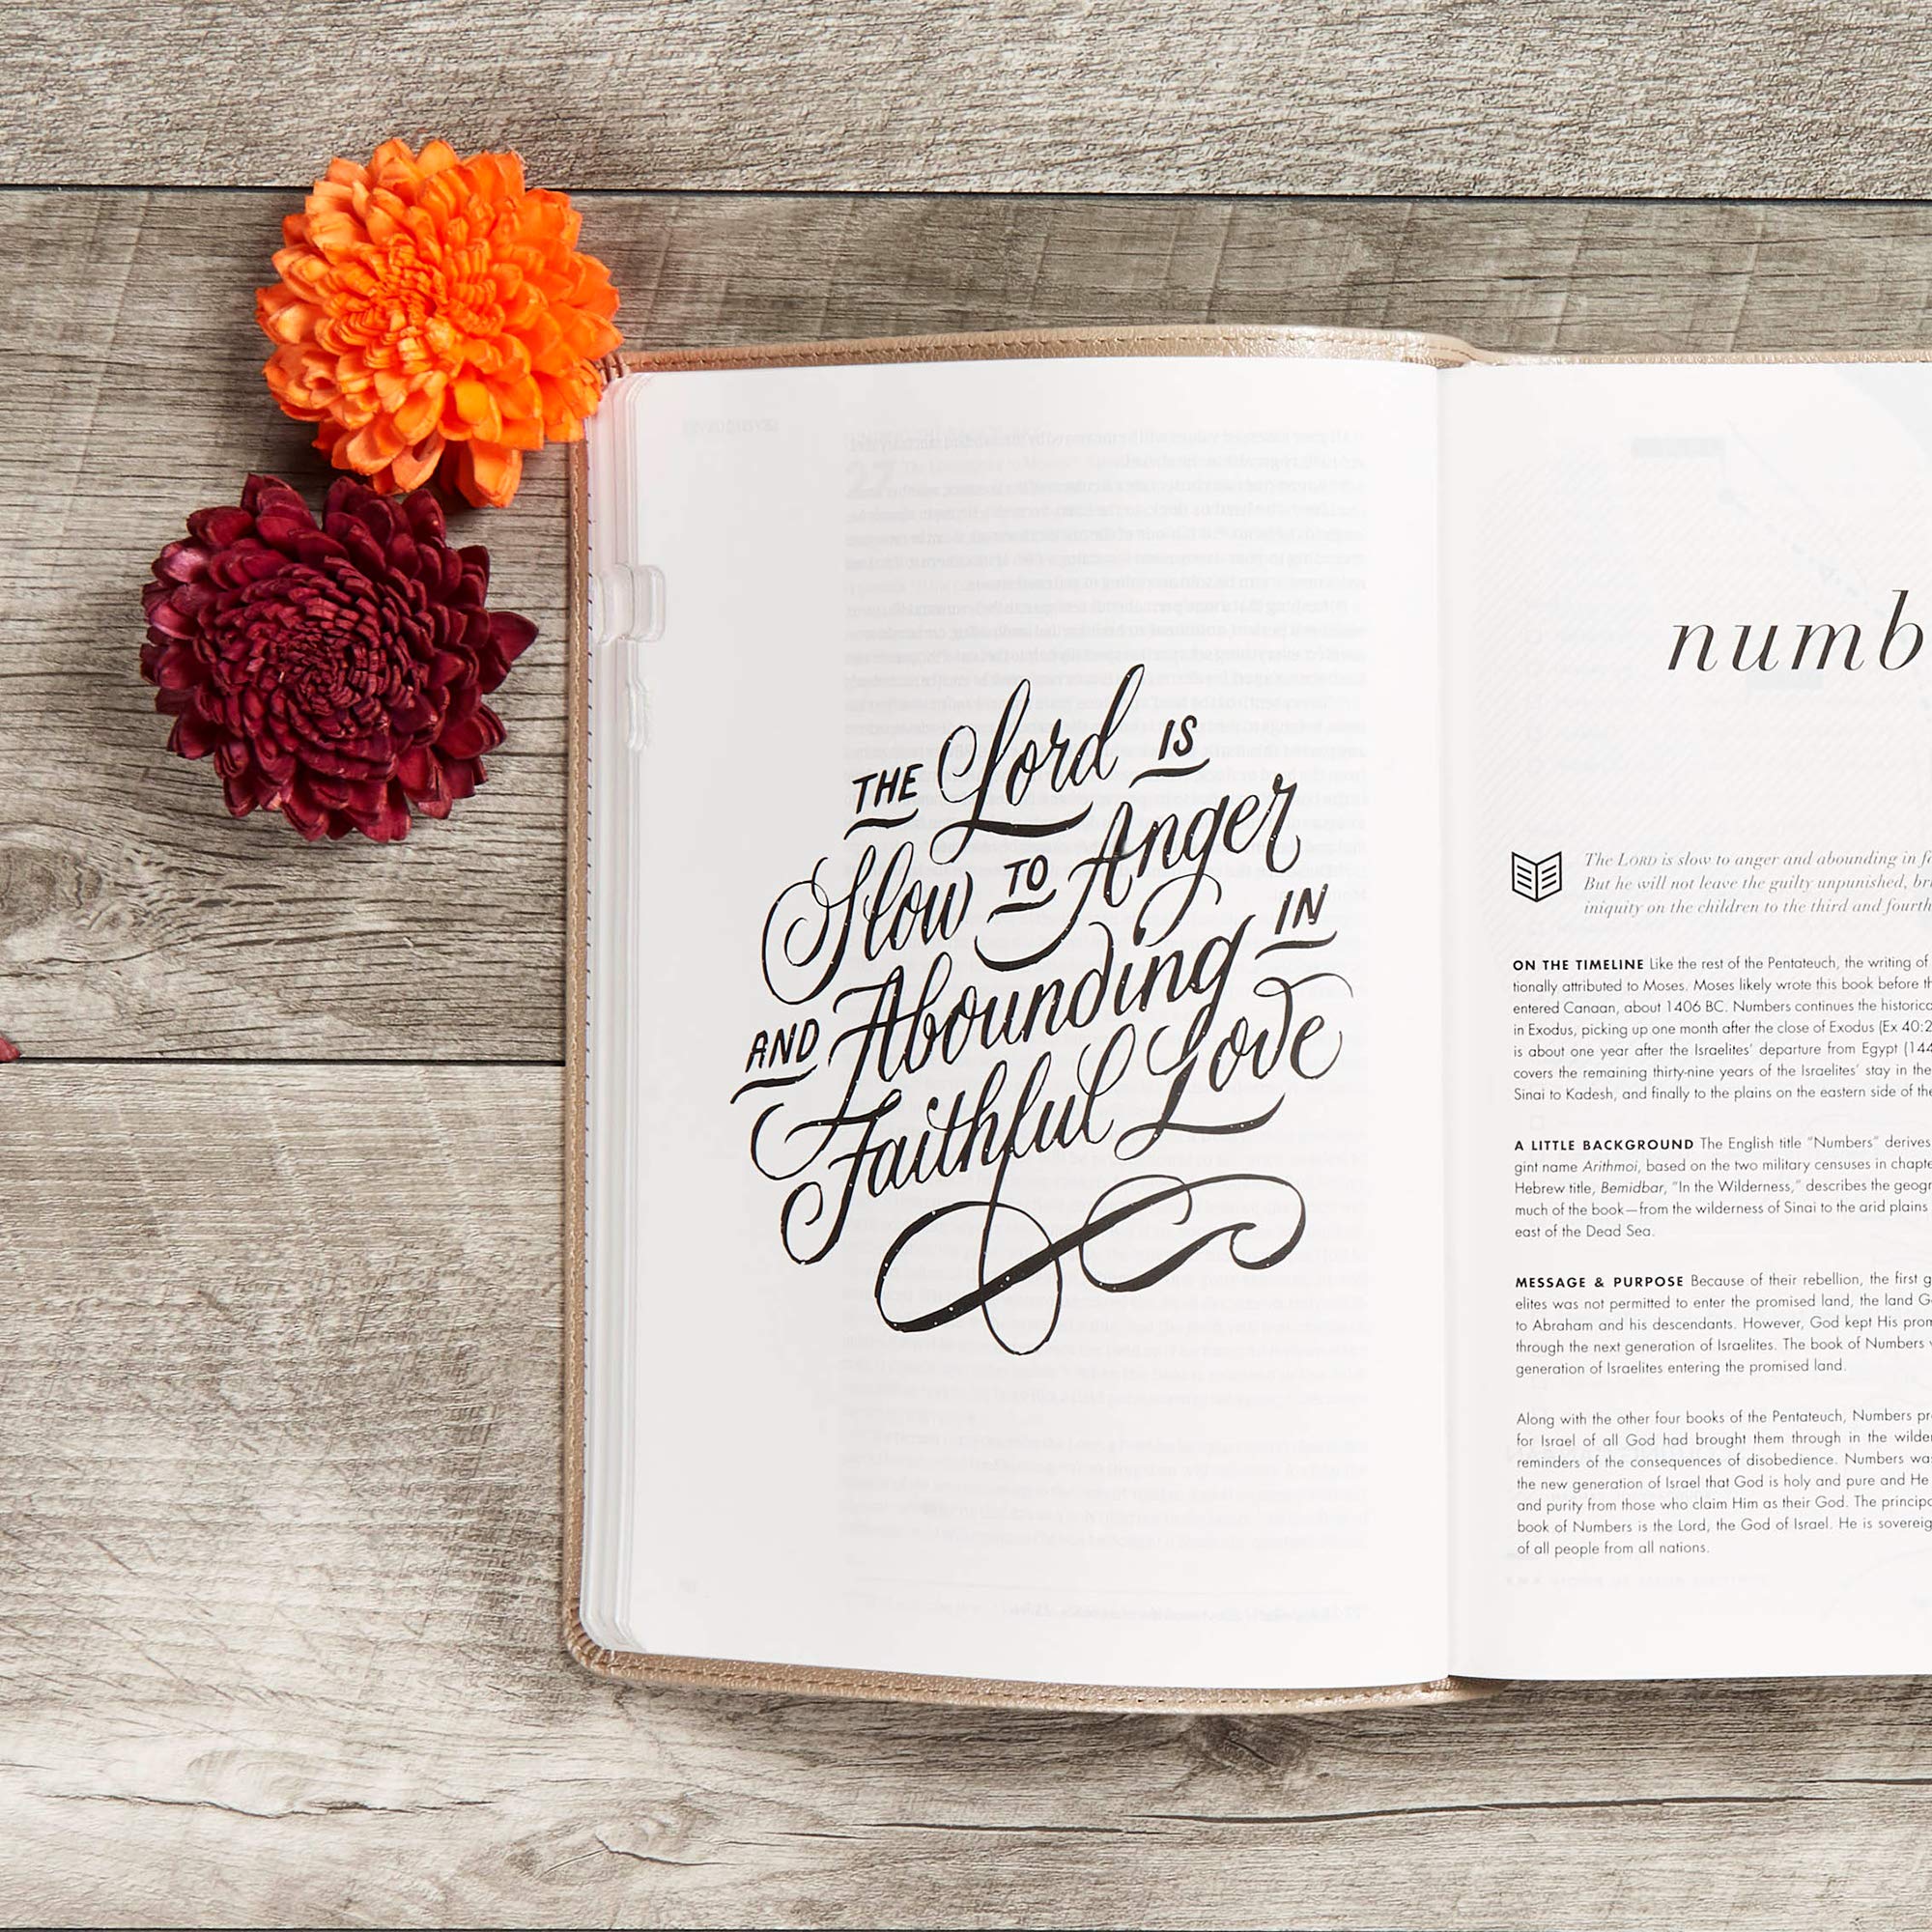 THE Lord IS
Slow TO Anger
AND Abounding IN
Faithful Love
numb
The LORD is slow to anger and abounding in
But he will not leave the guilty unpunished,
iniquity on the children to the third and fourth
ON THE TIMELINE Like the rest of the Pentateuch, the writing of
tionally attributed to Moses. Moses likely wrote this book before
entered Canaan, about 1406 BC. Numbers continues the
in Exodus, picking up one month after the close of Exodus (Ex 40:2
is about one year after the Israelites' departure from Egypt (144
covers the remaining thirty-nine years of the Israelites' stay in the
Sinai to Kadesh, and finally to the plains on the eastern side of the
A LITTLE BACKGROUND The English title "Numbers" derives
gint name Arithmoi, based on the two military censuses in
Hebrew title, Bemidbar, "In the Wilderness," describes the
much of the book—from the wilderness of Sinai to the arid plains
east of the Dead Sea.
MESSAGE & PURPOSE Because of their rebellion, the first g
elites was not permitted to enter the promised land, the land G
to Abraham and his descendants. However, God kept His
through the next generation of Israelites. The book of Numbers
generation of Israelites entering the promised land.
Along with the other four books of the Pentateuch, Numbers
for Israel of all God had brought them through in the
reminders of the consequences of disobedience. Numbers
the new generation of Israel that God is holy and pure and He
and purity from those who claim Him as their God. The
book of Numbers is the Lord, the God of Israel. He is
of all people from all nations.